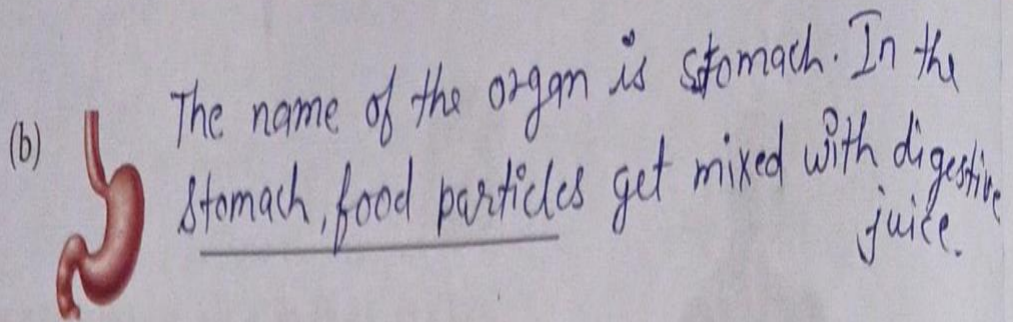 The name of the organ is stomach. In the
(b)
stomach, food particles get mixed with digestive
juice.